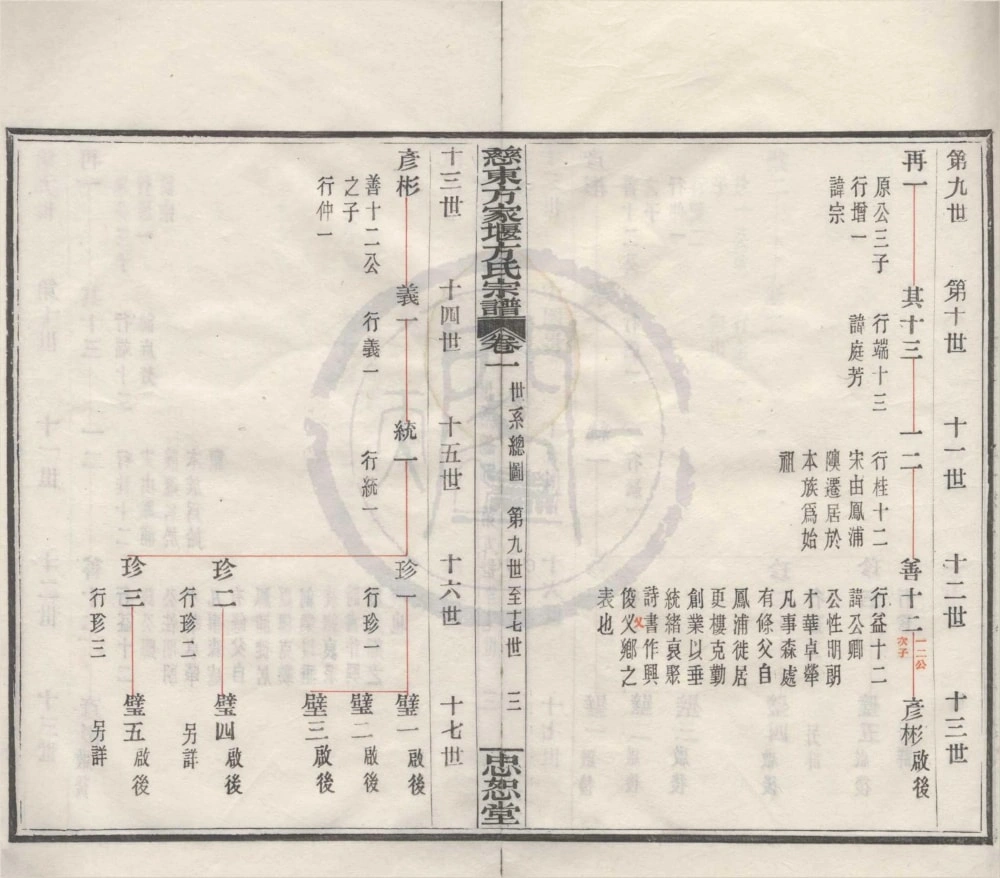 第九世
第十世
十一世
十二世
十三世
再一
原公三子
行增一
諱宗
其十三
行端十三
諱庭芳
一二
行桂十二
宋由鳳浦
隩遷居於
本族爲始
祖
善十二
一二公
次子
行益十二
諱公卿
公性明朗
才華卓犖
凡事森處
有條父自
鳳浦徙居
更樓克勤
創業以垂
統緒裒聚
詩書作興
俊义鄉之
乂
表也
彥彬
啟後
慈東方家堰方氏宗譜
卷一
世系總圖
第九世至七世
三
忠恕堂
十三世
十四世
十五世
十六世
十七世
彥彬
善十二公
之子
行仲一
義一
行義一
統一
行統一
珍一
行珍一
璧一
啟後
璧二
啟後
璧三
啟後
珍二
行珍二
璧四
啟後
另詳
珍三
行珍三
璧五
啟後
另詳